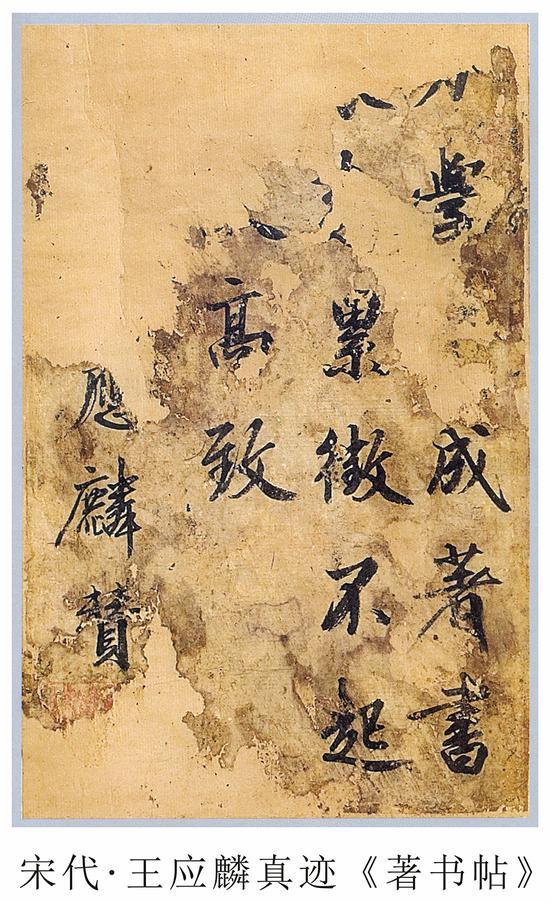 學成著書
累徵不起
高致
应麟赞
宋代·王应麟真迹《著书帖》